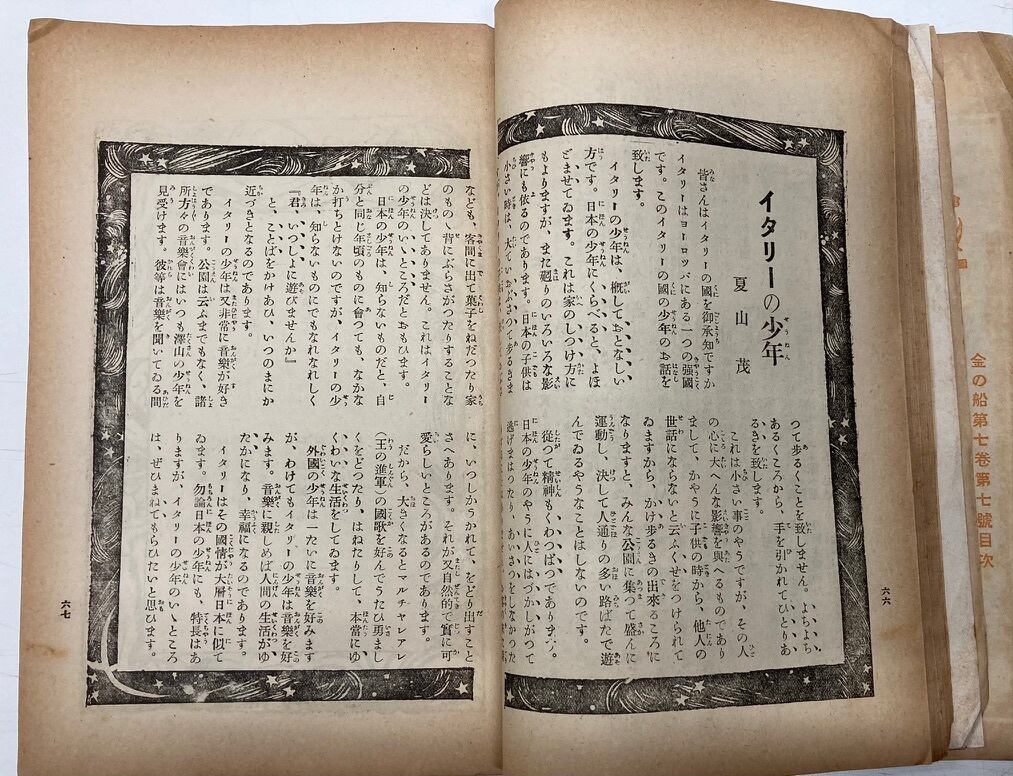 イタリーの少年
夏山茂
皆さんはイタリーの國を御承知ですか
イタリーはヨーロッパにある一つの強國
です。このイタリーの國の少年のお話を
致します。
イタリーの少年は、槪しておとなしい
方です。日本の少年にくらべると、よほ
どませてゐます。これは家のしつけ方に
もよりますが、また廻りのいろいろな影
響にも依るのであります。日本の子供は
小さい時は、大ていおぶさつて歩るきま
つて歩るくことを致しません。よちよち
あるくころから、手を引かれてひとりあ
るきを致します。
これは小さい事のやうですが、その人
の心に大へんな影響を與へるものであり
まして、かやうに子供の時から、他人の
世話にならないと云ふくせをつけられて
ゐますから、かけ歩るきの出來るころに
なりますと、みんな公園に集つて盛んに
運動し、決して人通りの多い路ばたで遊
んでゐるやうなことはしないのです。
從つて精神もくわつぱつであります。
日本の少年のやうに人にはづかしがつて
逃げまはつたり、あいさつをしなかつた
六六
なども、客間に出て菓子をねだつたり家
のもの、背にぶらさがつたりすることな
どは決してありません。これはイタリー
の少年のいゝところだとおもひます。
日本の少年は、知らないものだと、自
分と同じ年頃のものに會つても、なかな
か打ちとけないのですが、イタリーの少
年は、知らないものにでもなれなれしく
『君、いつしよに遊びませんか』
と、ことばをかけあひ、いつのまにか
近づきとなるのであります。
イタリーの少年は又非常に音樂が好き
であります。公園は云ふまでもなく、諸
所方々の音樂會にはいつも澤山の少年を
見受けます。彼等は音樂を聞いてゐる間
に、いつしかうかれて、をどり出すこと
さへあります。それが又自然的で實に可
愛らしいところがあるのであります。
だから、大きくなるとマルチャレアレ
(王の進軍)の國歌を好んでうたひ勇まし
くをどつたり、はねたりして、本當にゆ
くわいな生活をしてゐます。
外國の少年は一たいに音樂を好みます
が、わけてもイタリーの少年は音樂を好
みます。音樂に親しめば人間の生活がゆ
たかになり、幸福になるのであります。
イタリーはその國情が大層日本に似て
ゐます。勿論日本の少年にも、特長はあ
りますが、イタリーの少年のいゝところ
は、ぜひまねてもらひたいと思ひます。
六七
金の船第七卷第七號目次